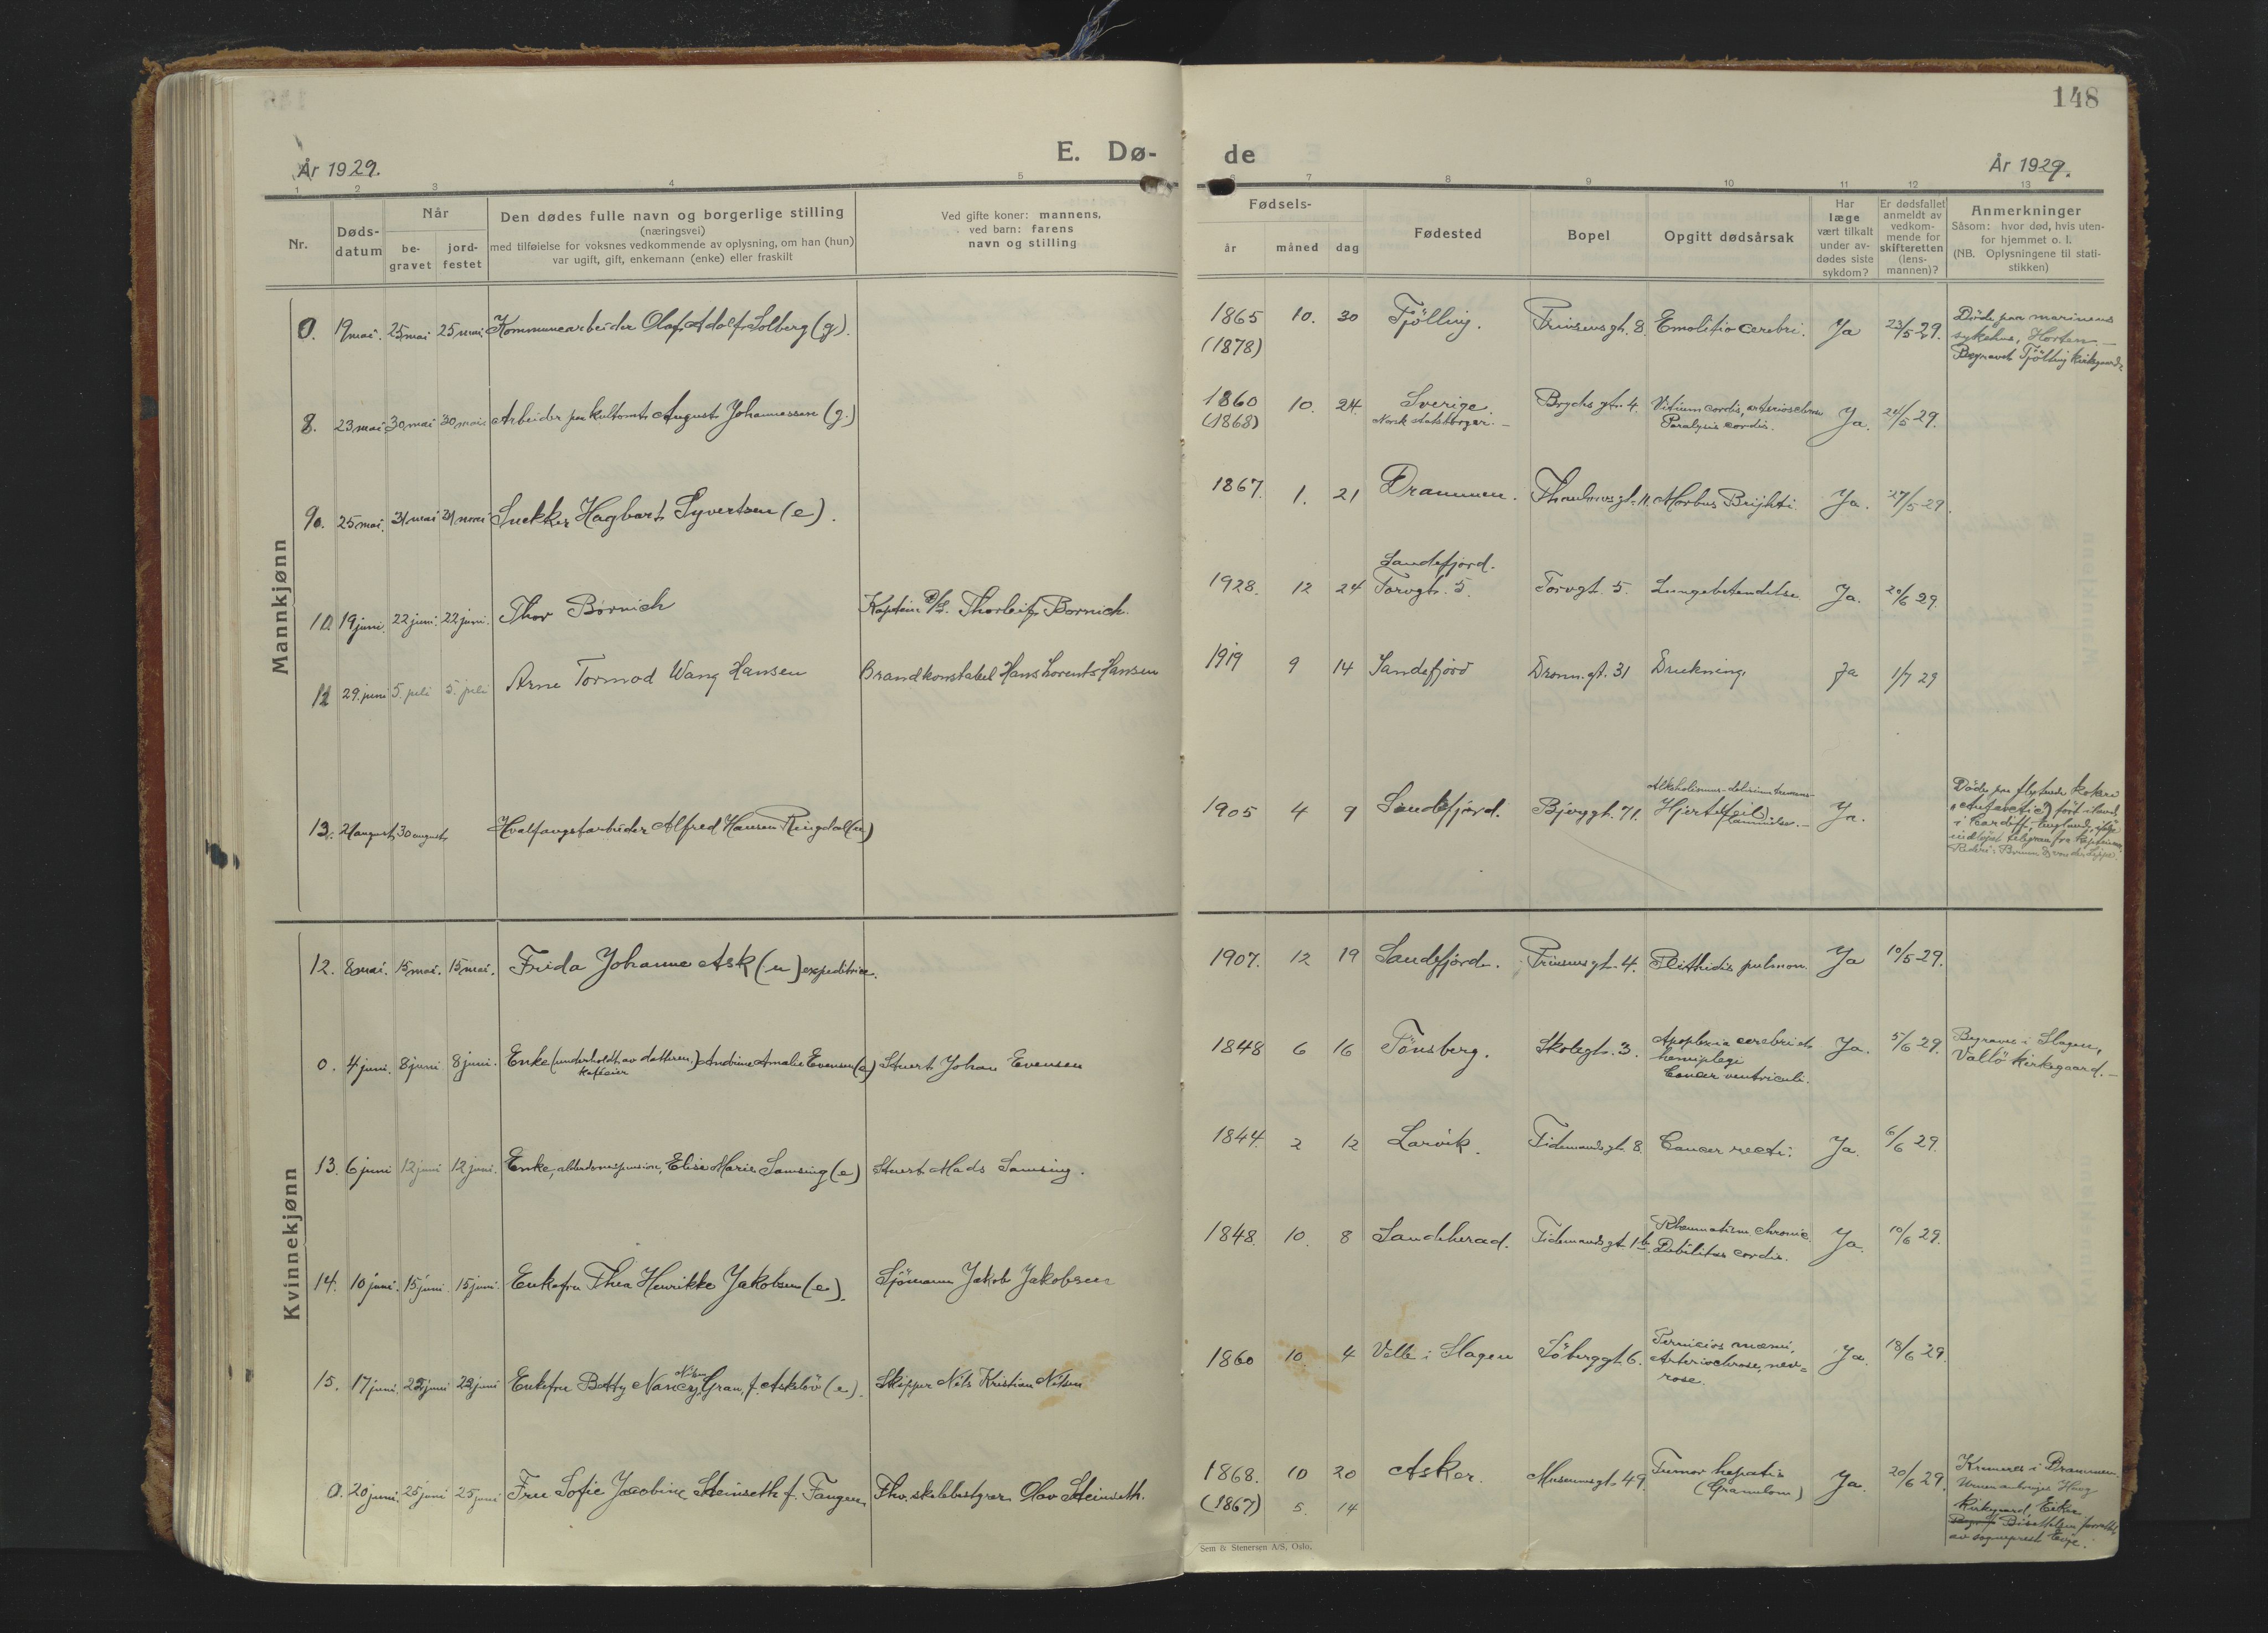 148
E. Dø- de
År 1929.
År 1929.
1 2 3 4 5 6 7 8 9 10 11 12 13
Nr.
Døds-
datum
Når
be-
gravet
jord-
festet
Den dødes fulle navn og borgerlige stilling
(næringsvei)
med tilføielse for voksnes vedkommende av oplysning, om han (hun)
var ugift, gift, enkemann (enke) eller fraskilt
Ved gifte koner: mannens,
ved barn: farens
navn og stilling
Fødsels-
år måned dag
Fødested
Bopel
Opgitt dødsårsak
Har
læge
vært tilkalt
under av-
dødes siste
sykdom?
Er dødsfallet
anmeldt av
vedkom-
mende for
skifteretten
(lens-
mannen)?
Anmerkninger
Såsom: hvor død, hvis uten-
for hjemmet o. l.
(NB. Oplysningene til stati-
stikken)
Mannkjønn
0. 19 mai. 25 mai 25 mai Kommunearbeider Olaf Adolf Solberg (g). 1865 10. 30 Tjölling. Prinsensgt. 8. Emolitio cerebri. Ja 23/5 29. Döde paa marinens
(1878) sykehus, Horten. –
Begravet Tjölling kirkegaard
8. 23 mai 30 mai 30 mai Arbeider paa kultomt August Johannessen (g.) 1860 10. 24. Sverige. Brychs gt. 4. Vitium cordis, arterioschrose Ja. 24/5 29.
(1868) Norsk statsborger. – Paralysis cordis.
9. 25 mai. 31 mai 31 mai Snekker Hagbart Syvertsen (e). 1867. 1. 21 Drammen. Thaulowsgt. 11. Morbus Brighti. Ja. 27/5 29.
Sandefjord.
10 19 juni. 22 juni. 22 juni. Thor Børnich Kaptein Thorleif Bornich. 1928. 12 24 Torvgt. 5. Torvgt. 5. Lungebetendelse Ja. 20/6 29.
12 29. juni 5. juli 5. juli Arne Tormod Wang Hansen Brandkonstabel Hans Lorents Hansen 1919 9 14 Sandefjord Dronn. gt. 31 Drukning. Ja 1/7 29
Alkoholismus - delirium tremens -
13. 21 august 30 august Hvalfangstarbeider Alfred Hansen Ringdal (u) 1905 4 9 Sandefjord. Bjerggt. 71. Hjertefeil Ja. Döde paa flytende kokeri
(lammelse. – "Antarctic" fört i land
i Cardiff, England, ifølge
indløpet telegram fra kapteinen.
Rederi: Bruun & von der Lippe.
Kvinnekjønn
12. 8 mai. 15 mai. 15 mai. Frida Johanne Ask (u) expeditrice. 1907. 12 19 Sandefjord. Prinsensgt. 4. Phthidis pulmon. Ja 10/5 29.
0. 4 juni. 8 juni 8 juni. Enke (underholdt av datteren,) Andrine Amalie Evensen (e) Stuert Johan Evensen 1848 6 16 Tönsberg. Skolegt. 3. Apoplexia cerebri et Ja. 5/6 29. Begraves i Slagen,
kafeeier hemiplegi Vallö kirkegaard. –
Cancer ventriculi.
13. 6 juni 12 juni 12 juni. Enke, alderdomspension, Elise Marie Samsing (e) Stuert Mads Samsing. 1844. 2 12 Larvik. Tidemandsgt. 8. Cancer recti. Ja. 6/6 29.
14. 10 juni. 15 juni. 15 juni. Enkefru Thea Henrikke Jakobsen (e). Sjömann Jakob Jakobsen 1848. 10. 8 Sandeherad. Tidemandsgt. 1b. Rheumatism chronic. Ja. 10/6 29.
Debilitas cordis.
15. 17 juni. 22 juni 22 juni Enkefru Betty Nancy Nilsen Gran, f. Askelöv (e). Skipper Nils Kristian Nilsen 1860 10. 4 Velle i Slagen Söberggt. 6. Pernicios anæmi, Ja. 18/6 29
Arteriochrose, nev=
rose.
0. 20 juni. 25 juni 25 juni Fru Sofie Jacobine Steinseth f. Fangen Fhv. skolebestyrer Olav Steinseth. 1868. 10 20 Asker. Museumsgt. 49. Tumor hepatis Ja. 20/6 29. Kremeres i Drammen.
(1867) 5. 14 (Granulom) Urnen anbringes Haug
kirkegaard, Eiker.
Bisættelsen forrettet
av sogneprest
Sem & Stenersen A/S, Oslo.